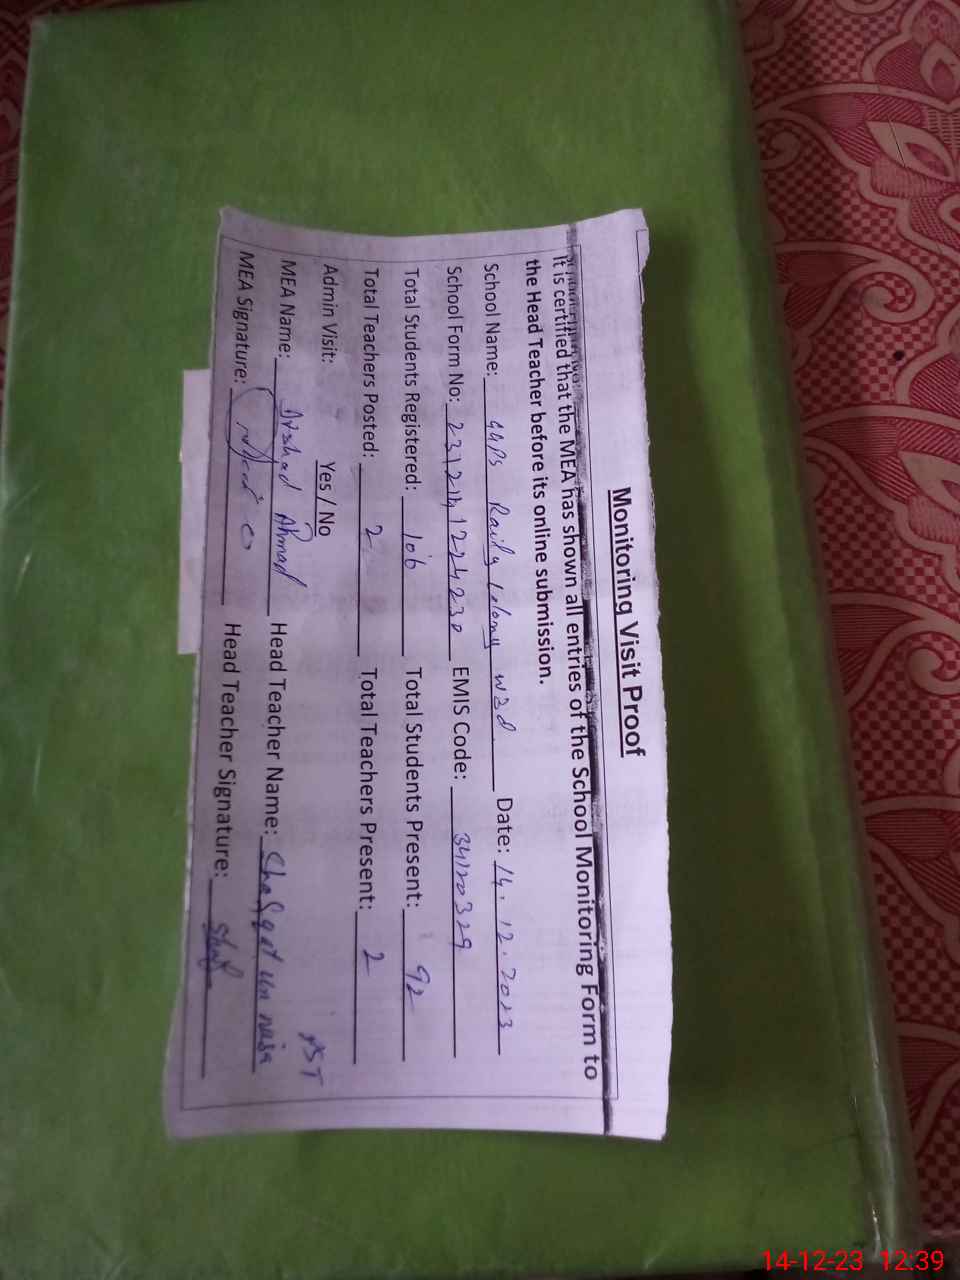 Monitoring Visit Proof
It is certified that the MEA has shown all entries of the School Monitoring Form to
the Head Teacher before its online submission.
School Name: GGPS Raily Colony wzd Date: 14.12.2023
School Form No: EMIS Code: 34120329
Total Students Registered: 106 Total Students Present: 92
Total Teachers Posted: 2 Total Teachers Present: 2
Admin Visit: Yes / No PST
MEA Name: Arshad Ahmad Head Teacher Name: Shafqat un nisa
MEA Signature: Head Teacher Signature: Shaf
14-12-23 12:39